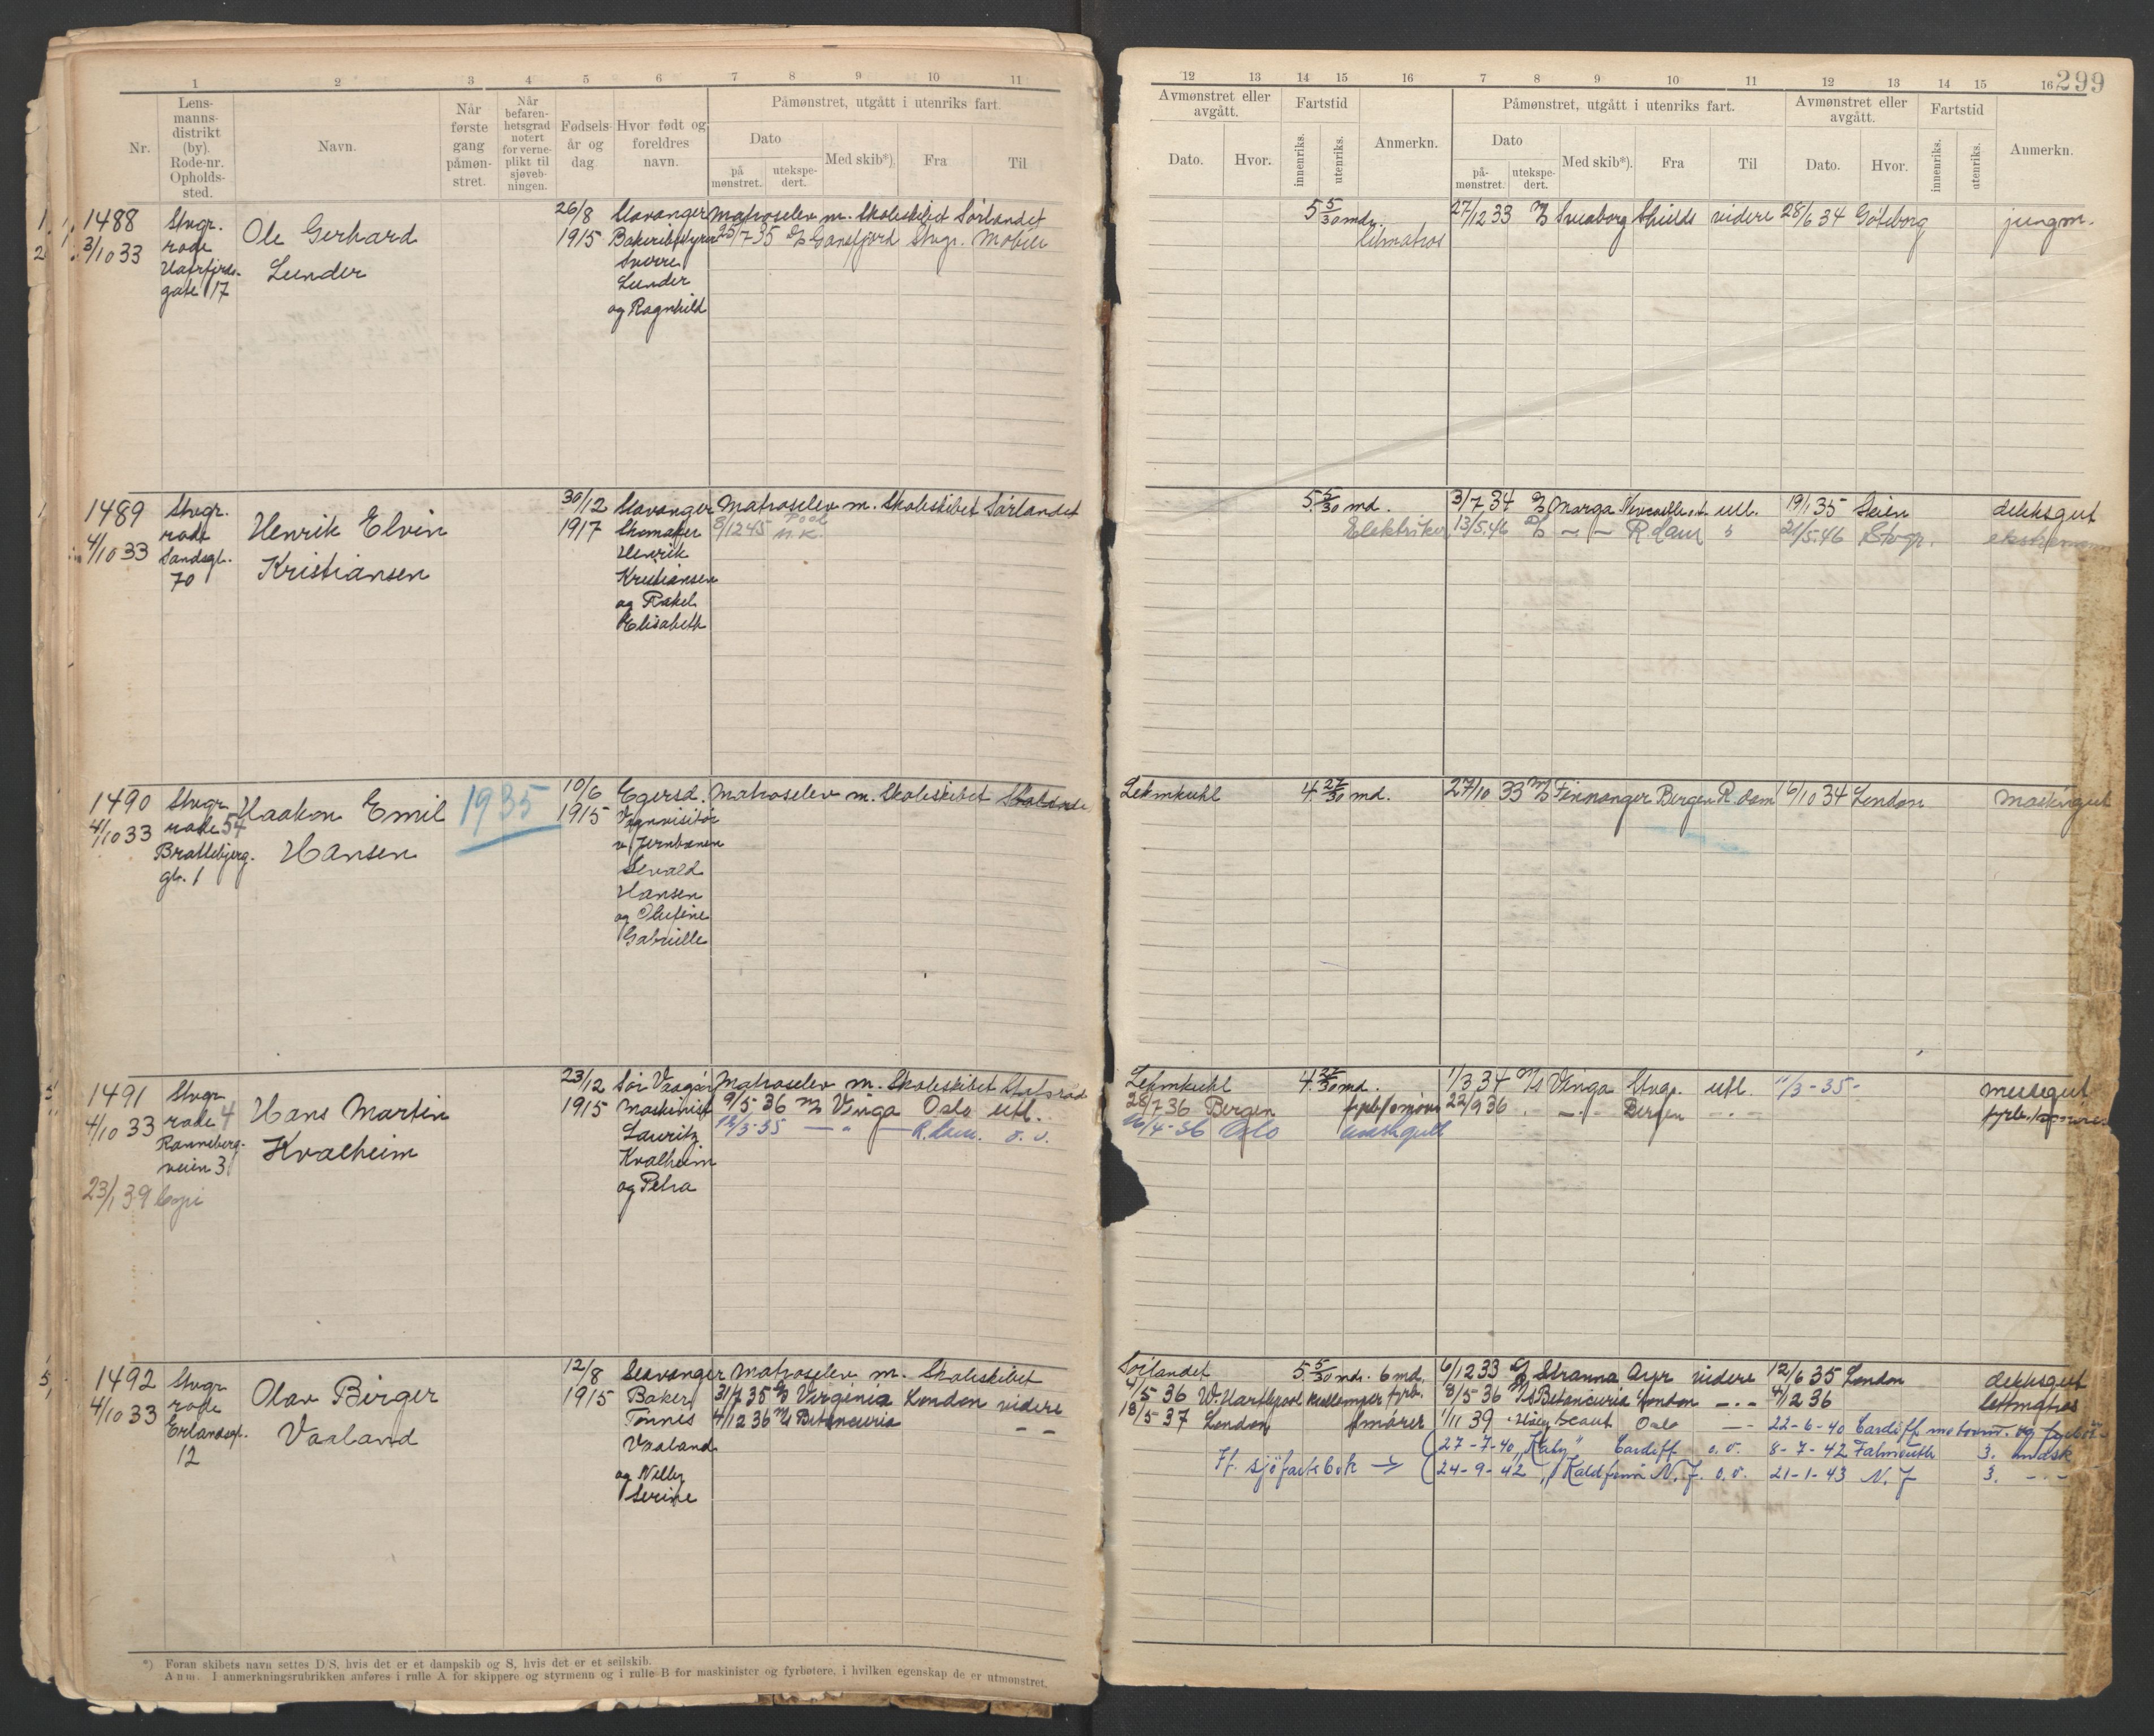 1 2 3 4 5 6 7 8 9 10 11
Nr.
Lens-
manns-
distrikt
(by).
Rode-nr.
Opholds-
sted.
Navn.
Når
første
gang
påmøn-
stret.
Når
befaren-
hetsgrad
notert
for verne-
plikt til
sjøveb-
ningen.
Fødsels-
år og
dag
Hvor født og
foreldres
navn.
Påmønstret, utgått i utenriks fart.
Dato
på
mønstret.
utekspe-
dert.
Med skib*)
Fra
Til
1488 Stvgr. Ole Gerhard 26/8 Stavanger Matroselev m. Skoleskibet Sörlandet
3/10 33 rode Lunder 1915 25/7 35 Gansfjord Stvgr. Mobile
gate 17
Sverre
Lunder
og Ragnhild
1489 Stvgr. Henrik Elvin 30/12 Stavanger Matroselev m. Skoleskibet Sörlandet
4/10 33 rode Kristiansen 1917 Skomaker 8/12 45 Pool
Sandsgt. N.K.
70
Henrik
Kristiansen
og Rakel
Elisabeth
1490 Stvgr. Haakon Emil 1935 10/6 Egersd. Matroselev m. Skoleskibet Statsraad
4/10 33 rode 54 Hansen 1915 Vognvisitör
Brattebjerg-
gt. 1
v/Jernbanen
Sevald
Hansen
og Olufine
Gabrielle
1491 Stvgr. Hans Martin 23/12 Sör Vaagöy Matroselev m. Skoleskibet Statsraad
4/10 33 rode 4 Kvalheim 1915 Maskinist 9/5 36 M/S Vinga Oslo utl.
Ranneberg-
veien 3
12/3-35 — " — R.dam. o. v.
Lauritz
Kvalheim
og Petra
23/1 39 Copi
1492 Stvgr. Olav Birger 12/8 Stavanger Matroselev m. Skoleskibet
4/10 33 rode Vaaland 1915 Baker 31/7 35 Virginia London videre
Erlandsgt. Tönnis 4/12 36 M/S Betancuria — —
12
Vaaland
og Nelly
Serine
*) Foran skibets navn settes D/S, hvis det er et dampskib og S, hvis det er et seilskib.
Anm. I anmerkningsrubrikken anføres i rulle A for skippere og styrmenn og i rulle B for maskinister og fyrbøtere, i hvilken egenskap de er utmønstret.
12 13 14 15 16 7 8 9 10 11 12 13 14 15 16 299
Avmønstret eller
avgått.
Fartstid
Påmønstret, utgått i utenriks fart.
Avmønstret eller
avgått.
Fartstid
Dato.
Hvor.
innenriks.
utenriks.
Anmerkn.
Dato
på-
mønstret.
utekspe-
dert.
Med skib*).
Fra
Til
Dato.
Hvor.
innenriks.
utenriks.
Anmerkn.
5 5/30 md. 27/12 33 M/S Sveaborg Shields videre 28/6 34 Göteborg jungm.
Letmatros
5 5/30 md. 3/7 34 Marga Newcastle utl. 19/1 35 dekksgut
Elektriker 13/5.46 D/S — — R.dam 21/5-46 Stvgr. ekstramann
Lehmkuhl 4 27/30 md. 27/10 33 M/S Finnanger Bergen R.dam 6/10 34 London maskingut
Lehmkuhl 4 27/30 md. 1/3 34 M/S Vinga Stvgr. utl. 11/3-35- messegut
28/7 36 Bergen 22/9 36 — " — Bergen — " —
16/4-36 Oslo
Sörlandet 5 5/30 md. 6 md. 6/12 33 Stranna Ayr videre 12/6 35 London dekksgut
4/5 36 W. Hartlepool 8/5 36 M/S Betancuria London — " — 4/12 36 lettmatros
13/5 37 London smörer 1/11 39 Scaut Oslo — 22-6-40 Cardiff
27-7-40 „Katy" Cardiff o.v. 8-7-42 Falmouth 3. mask
Ff. sjöfartsbok → 24-9-42 „Kaldfonn N.J. o.v. 21-1-43 N.J 3. — " —